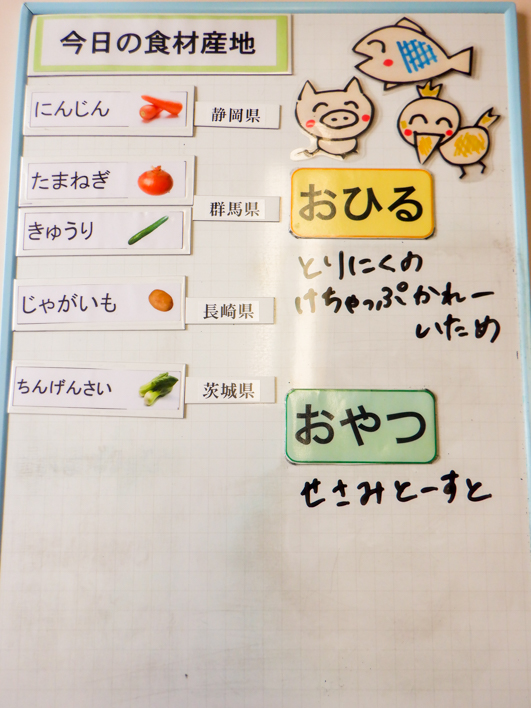 今日の食材産地
にんじん
静岡県
たまねぎ
群馬県
きゅうり
じゃがいも
長崎県
ちんげんさい
茨城県
おひる
とりにくの
けちゃっぷかれー
いため
おやつ
せさみとーすと